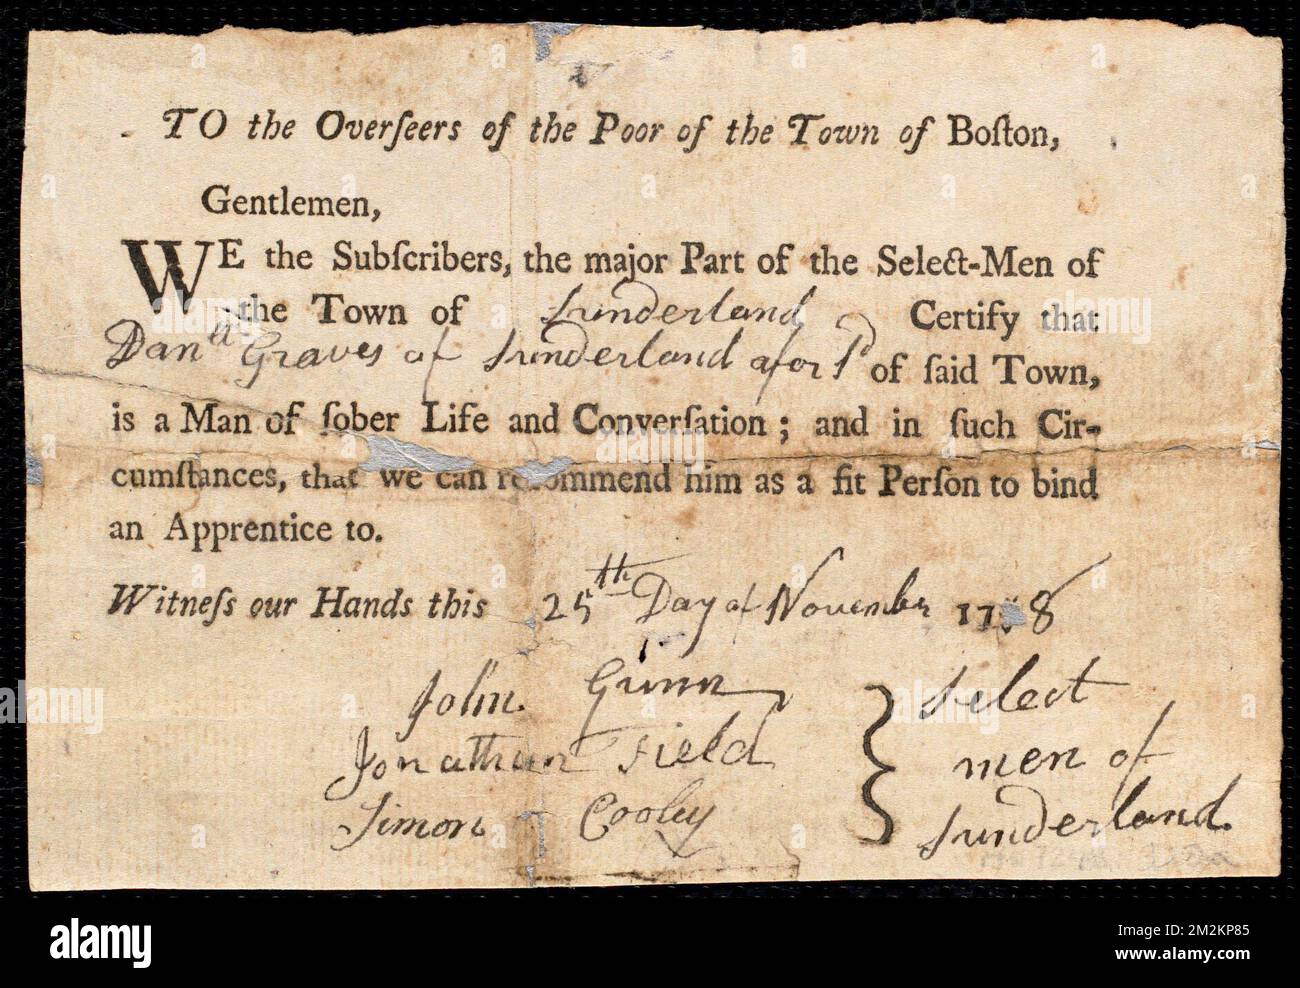 TO the Overſeers of the Poor of the Town of Boſton,
Gentlemen,
WE the Subſcribers, the major Part of the Select-Men of
the Town of Sunderland Certify that
Danll Graves of Sunderland aforsd of ſaid Town,
is a Man of ſober Life and Converſation; and in ſuch Cir-
cumſtances, that we can recommend him as a fit Perſon to bind
an Apprentice to.
Witneſs our Hands this 25th Day of November 17 8
John Gunn
Jonathan Field
Simon Cooley
Select
men of
Sunderland.
alamy
Image ID: 2M2KP85
www.alamy.com